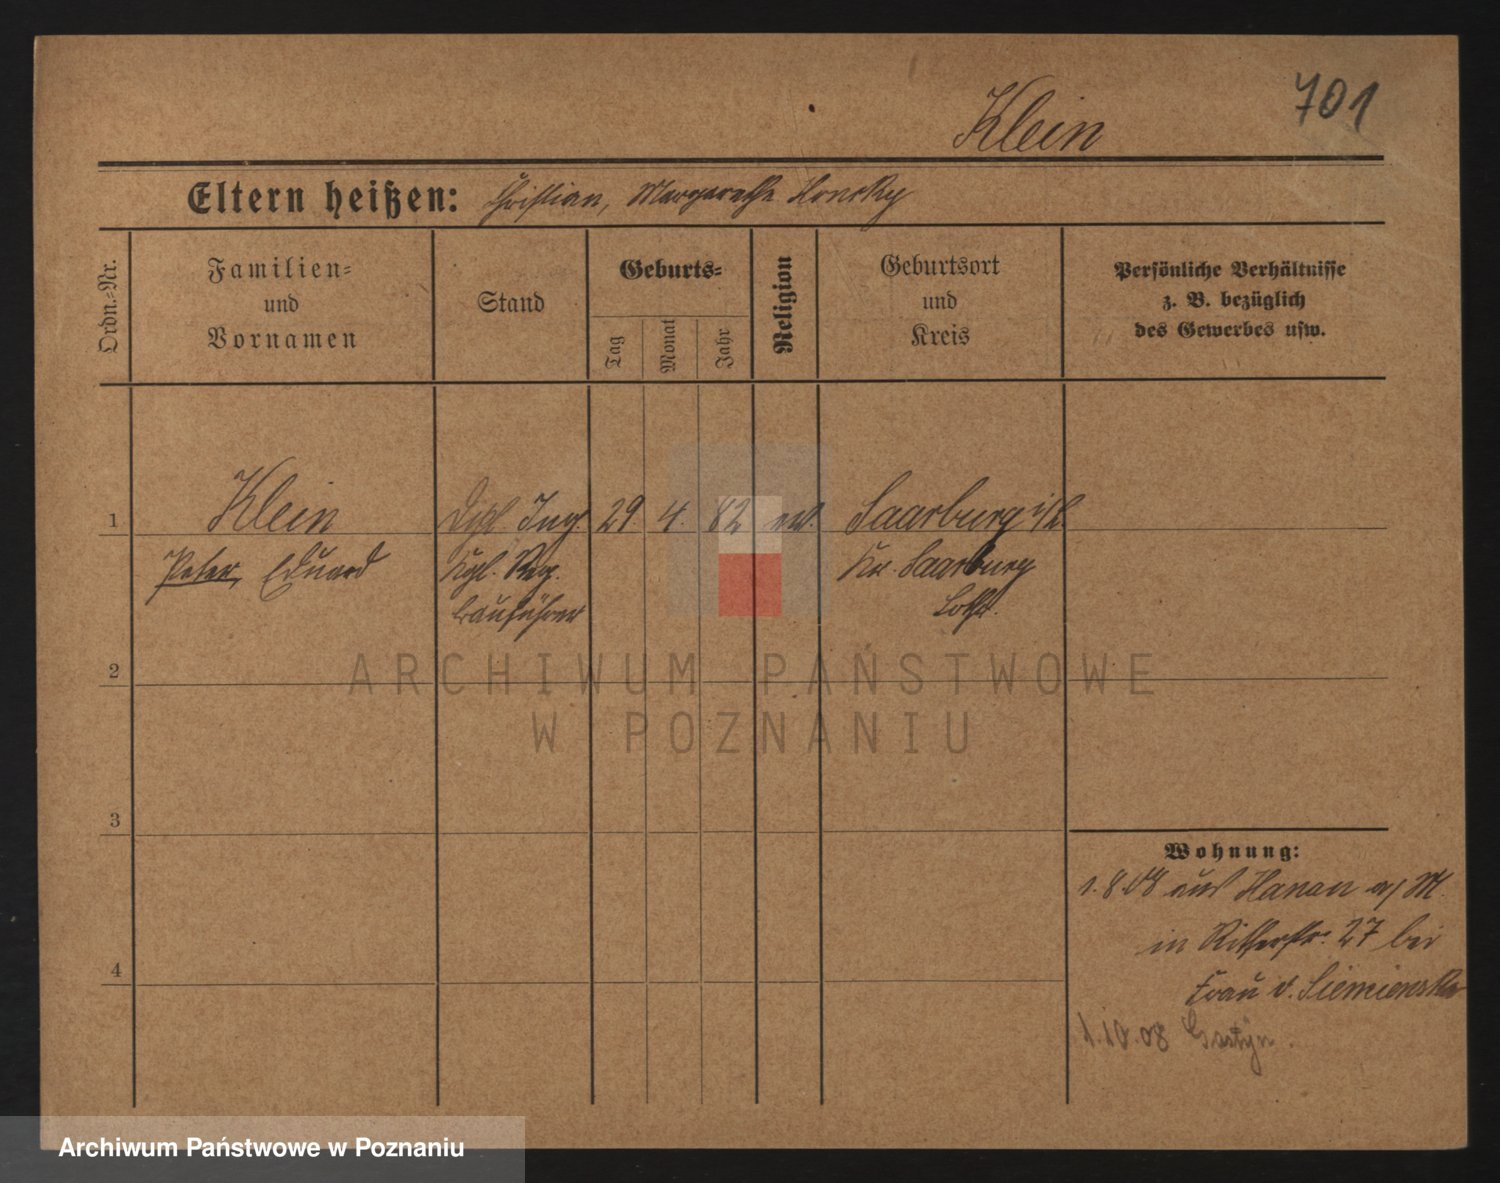 701
Klein
Eltern heißen: Christian, Margarethe
Ordn.=Nr.
Familien=
und
Vornamen
Stand
Geburts=
Tag
Monat
Jahr
Religion
Geburtsort
und
Kreis
Persönliche Verhältnisse
z. B. bezüglich
des Gewerbes usw.
1 Klein Dipl. Ing. 29. 4. 82 ev. Saarburg i/L.
Peter, Eduard Kgl. Reg. Kr. Saarburg
bauführer Lothr.
2
3
4
Wohnung:
1.8.08 aus Hanau a/M.
in Ritterstr. 27 bei
Frau v. Siemienska
1.10.08 Gostyn.
ARCHIWUM PAŃSTWOWE
W POZNANIU
Archiwum Państwowe w Poznaniu